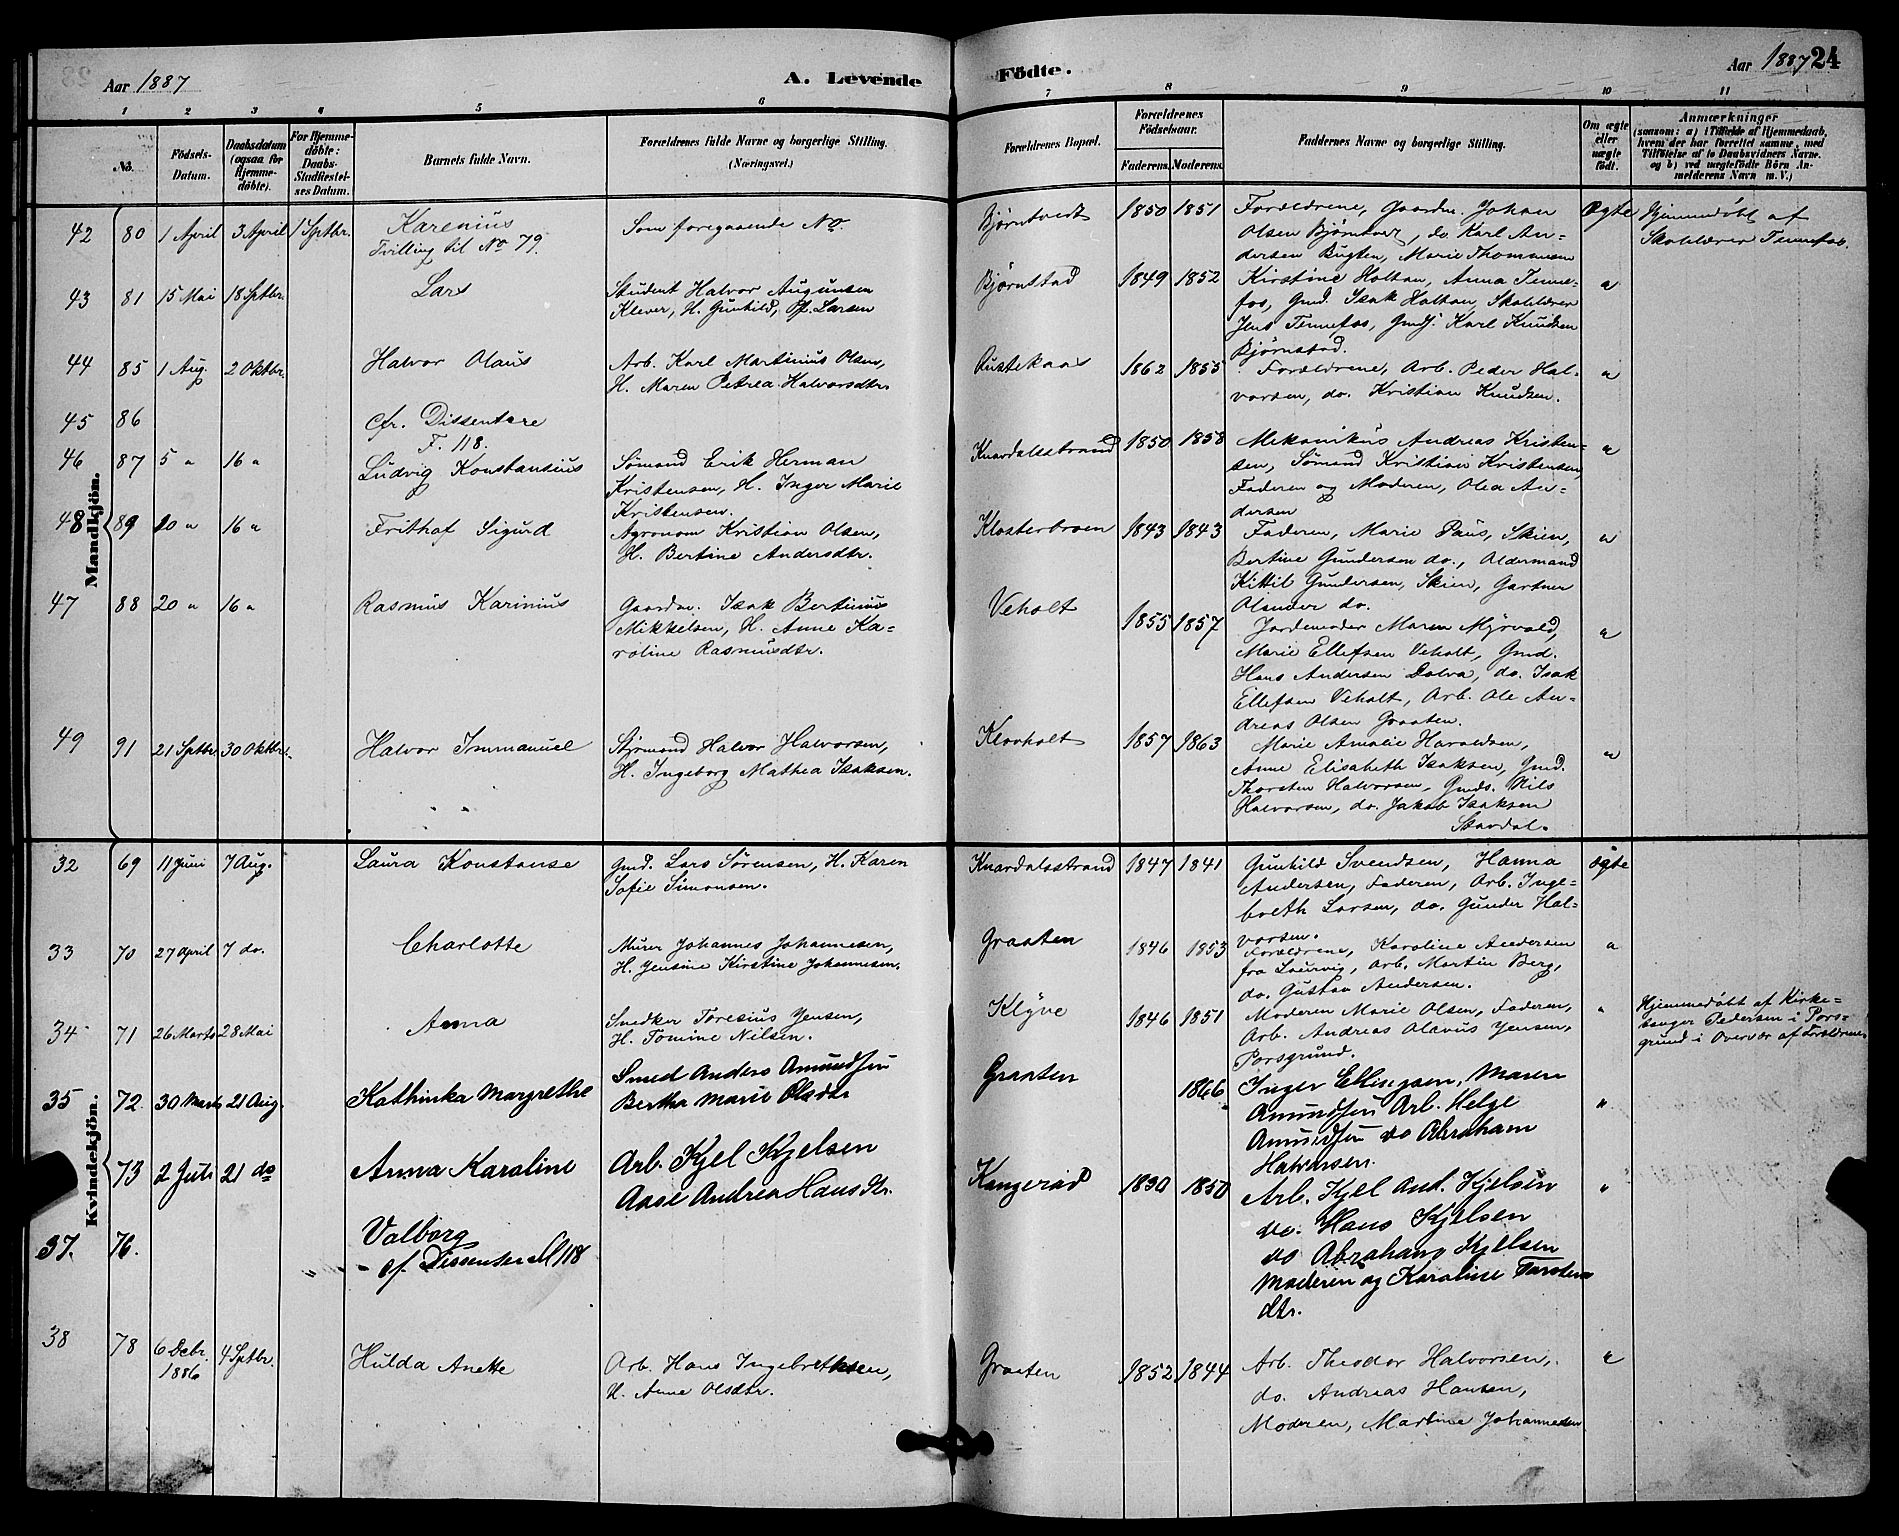 Aar 1887
A. Levende
Födte.
Aar 1887 24
1 2 3 4 5 6 7 8 9 10 11
No.
Födsels-Datum.
Daabsdatum (ogsaa for Hjemme-döbte).
For Hjemme-döbte: Daabs-Stadfæstel-ses Datum.
Barnets fulde Navn.
Forældrenes fulde Navne og borgerlige Stilling.
(Næringsvei.)
Forældrenes Bopæl.
Forældrenes Födselsaar.
Faderens. Moderens.
Faddernes Navne og borgerlige Stilling.
Om ægte eller uægte födt.
Anmærkninger
(saasom: a) i Tilfælde af Hjemmedaab,
hvem der har forrettet samme, med
Tilföielse af to Daabsvidners Navne.
og b) ved uægtefödte Börn An-
melderens Navn m. V.)
Mandkjön.
42 80 1 April 3 April 1 Sptbr. Karenius
Tvilling til No 79.
Som foregaaende No.
Bjørntvedt 1850 1851
Forældrene, Gaardm. Johan
Olsen Bjørntvet, do. Karl An=
dersen Bugten, Marie Thommesen
Ægte
Hjemmedøbt af
Skolelærer Tennefos.
43 81 15 Mai 18 Sptbr. Lars
Student Halvor Augunsen
Klever, H. Gunhild, Pf. Larsen
Bjørnstad 1849 1852
Kirstine Holtan, Anna Tenne=
fos, Gmd. Isak Holtan, Skolelærer
Jens Tennefos, Gmdf. Karl Knudsen
Bjørnstad.
"
44 85 1 Aug. 2 Oktbr. Halvor Olaus
Arb. Karl Martinius Olsen,
H. Maren Petrea Halvorsdtr.
Rustekaas 1862 1855
Forældrene, Arb. Peder Hal=
vorsen, do. Kristian Knudsen.
"
45 86
cfr. Dissentere
F. 118.
46 87 5 " 16 " Ludvig Konstansius
Sømand Erik Herman
Kristensen, H. Inger Marie
Kristensen.
Knardalsstrand 1850 1858
Mekanikus Andreas Kristen=
sen, Sømand Kristian Kristensen,
Faderen og Moderen, Olea An=
dersen
"
48 89 20 " 16 " Frithof Sigurd
Agronom Kristian Olsen,
H. Bertine Andersdtr.
Klosterbroen 1843 1843
Faderen, Marie Paus, Skien,
Bertine Gundersen do., Oldermand
Kittil Gundersen, Skien, Gartner
Olander do.
"
47 88 20 " 16 " Rasmus Karinius
Gaardm. Isak Bertinius
Mikkelsen, H. Anne Ka=
roline Rasmusdtr.
Veholt 1855 1857
Jordemoder Maren Myrvold,
Marie Ellefsen Veholt, Gmd.
Hans Andersen Dolva, do. Isak
Ellefsen Veholt, Arb. Ole An=
dreas Olsen Graaten.
"
49 91 21 Sptbr. 30 Oktbr. Halvor Immanuel
Styrmand Halvor Halvorsen,
H. Ingeborg Mathea Isaksen.
Klovholt 1857 1863
Marie Amalie Haraldsen,
Anne Elisabeth Isaksen, Gmd.
Thorsten Halvorsen, Gmds. Nils
Halvorsen, do. Jakob Isaksen
Skavdal.
"
Kvindekjön.
32 69 11 Juni 7 Aug. Laura Konstanse
Gmd. Lars Sørensen, H. Karen
Sofie Simonsen.
Knardalsstrand 1847 1841
Gunhild Svendsen, Hanna
Andersen, Faderen, Arb. Inge=
breth Larsen, do. Gunder Hal=
vorsen.
ægte
33 70 27 April 7 do. Charlotte
Murer Johannes Johannesen,
H. Jensine Kirstine Johannesen.
Graaten 1846 1853
Forældrene, Karoline Andersen
fra Laurvig, Arb. Martin Berg,
do. Gustav Andersen.
"
34 71 26 Marts 28 Mai Anna
Snedker Toresius Jensen,
H. Tomine Nilsen.
Klyve 1846 1851
Moderen Marie Olsen, Faderen,
Arb. Andreas Olavus Jensen,
Porsgrund.
"
Hjemmedøbt af Kirke=
sanger Pedersen i Pors=
grund i Overvær af Forældrene
35 72. 30 Marts 21 Aug. Kathinka Margrethe
Smed Anders Amundsen
Bertha Marie Olsdtr
Graaten 1866
Inger Ellingsen, Maren
Amundsen Arb. Helge
Amundsen do Abraham
Halvorsen.
"
73 2 Juli 21 do Anna Karoline
Arb. Kjel Kjelsen
Aase Andrea Hansdtr.
Kongerød 1830 1850
Arb. Kjel And. Kjelsen
do. Hans Kjelsen
do Abraham Kjelsen
Moderen og Karoline Torstens
dtr.
"
37. 76. Valborg
cf. Dissenter M 118
38 78 6 Debr. 1886 4 Sptbr. Hulda Anette
Arb. Hans Ingebrethsen,
H. Anne Olsdtr.
Graaten 1852 1844
Arb. Theodor Halvorsen,
do. Andreas Hansen,
Moderen, Martine Johannesen
"